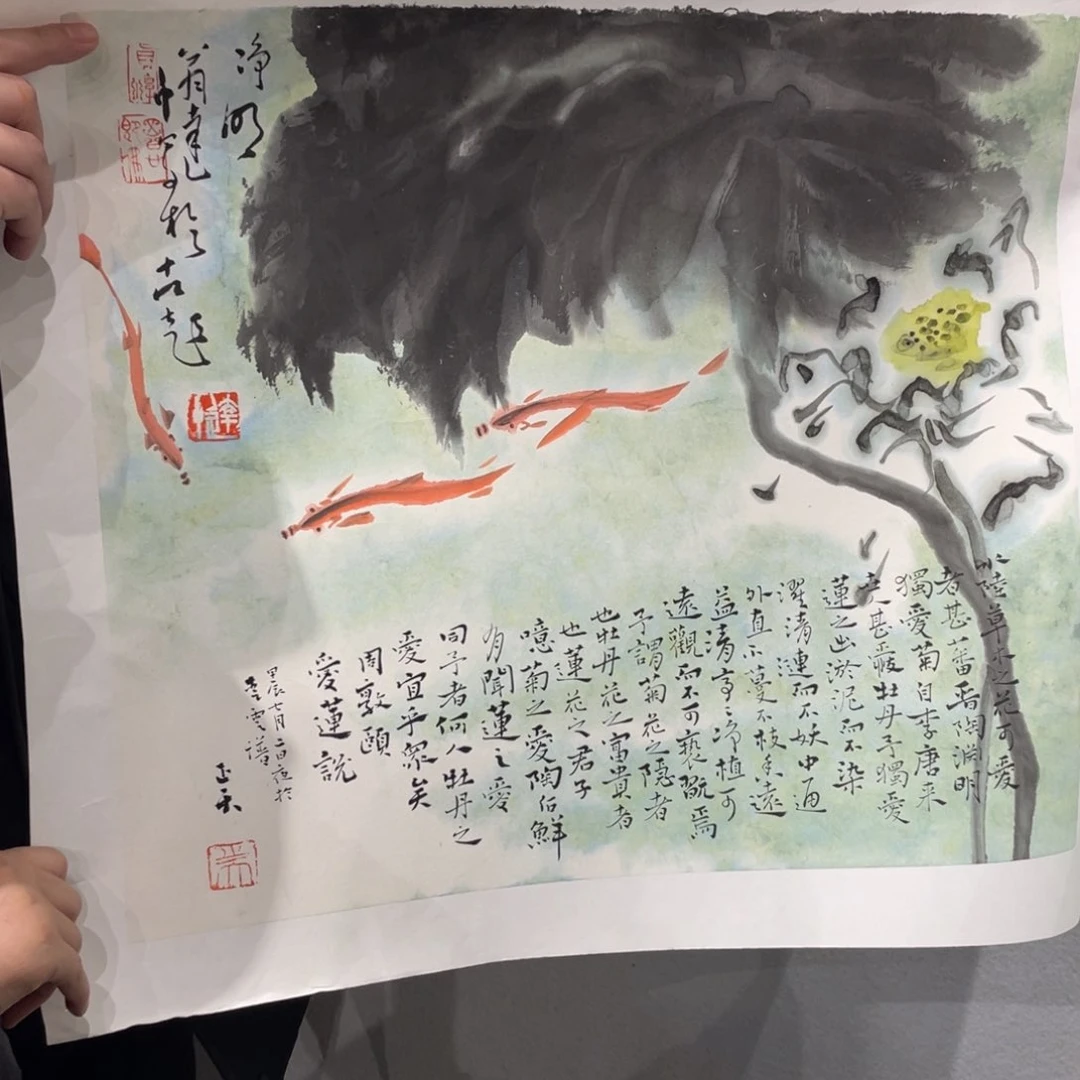 水陸草木之花可愛
者甚蕃晋陶淵明
獨愛菊自李唐来
甚爱牡丹予獨愛
蓮之出淤泥而不染
濯清漣而不妖中通
外直不蔓不枝香遠
益清亭亭净植可
遠觀而不可褻翫焉
予謂菊花之隠者
也牡丹花之富貴者
也蓮花之君子
噫菊之愛陶後鮮
有聞蓮之愛
同予者何人牡丹之
愛宜乎衆矣
周敦頤
愛蓮說
甲辰七月二日夜於
净